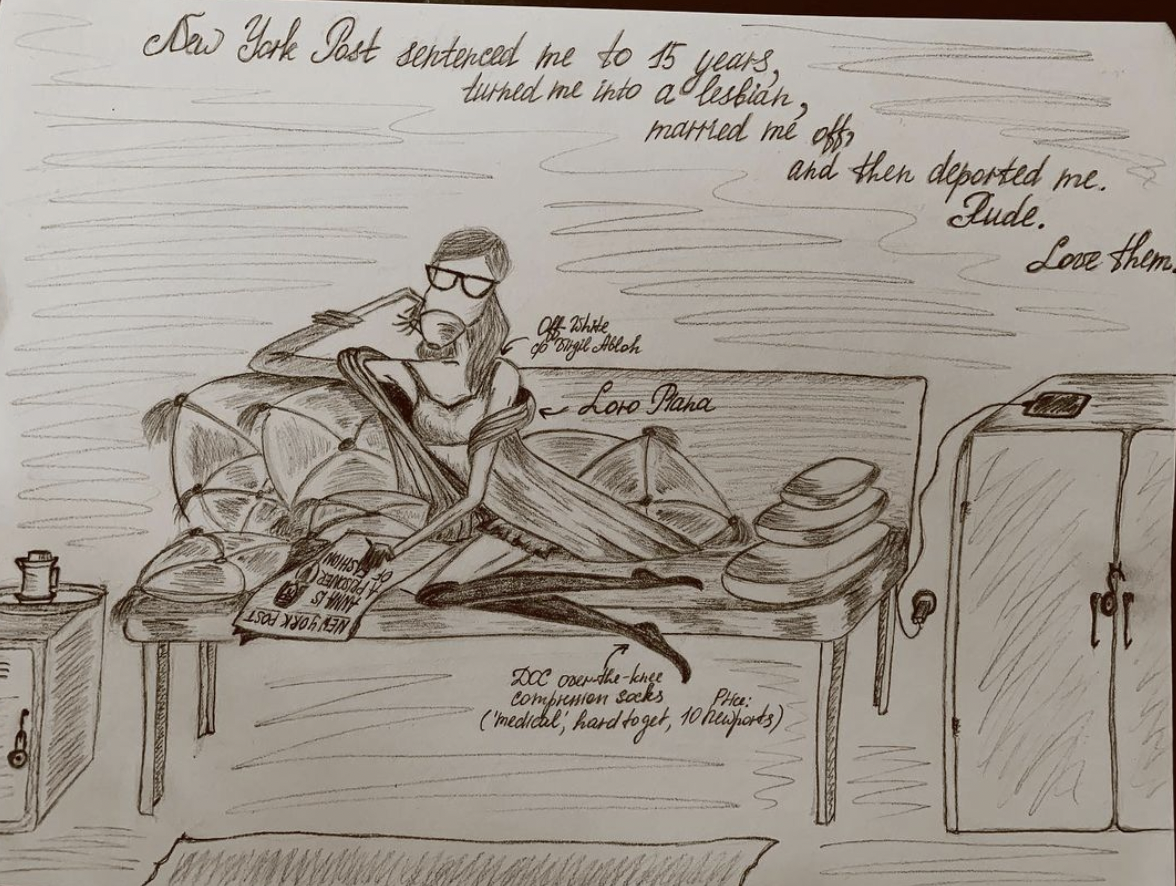 New York Post sentenced me to 15 years,
turned me into a lesbian,
married me off,
and then deported me.
Rude.
Love them.
Off-White
Virgil Abloh
Loro Piana
NEW YORK POST
ANNA IS
A PRISONER
OF FASHION
DOC over-the-knee
compression socks
('medical', hard to get, Price: 10 newports)